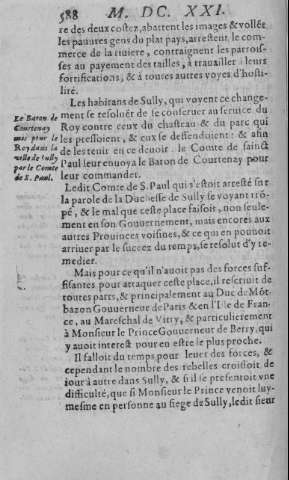 588 M. DC. XXI.
re des deux costez, abattent les images & vollēt
les pauures gens du plat pays, arrestent le com-
merce de la riuiere, contraignent les parrois-
ses au payement des tailles, à trauailler à leurs
fortifications, & à toutes autres voyes d'hosti-
lité.
Les habitans de Sully, qui voyent ce change-
ment se resoluēt de se conseruer au seruice du
Roy contre ceux du chasteau & du parc qui
les pressoient, & eux se deffenduient: & afin
de les tenir en ce deuoir: le Comte de sainct
Paul leur enuoya le Baron de Courtenay pour
leur commander.
Le Baron de
Courtenay
mis pour le
Roy dans la
ville de Sully
par le Comte
de S. Paul.
Ledit Comte de S. Paul qui s'estoit arresté sur
la parole de la Duchesse de Sully se voyant trō-
pé, & le mal que ceste place faisoit, non seule-
ment en son Gouuernement, mais encores aux
autres Prouinces voisines, & ce qui en pouuoit
arriuer par le succez du temps, se resolut d'y re-
medier.
Mais pour ce qu'il n'auoit pas des forces suf-
fisantes pour attaquer ceste place, il rescriuit de
toutes parts, & principalement au Duc de Mōt-
bazon Gouuerneur de Paris & en l'Isle de Fran-
ce, au Mareschal de Vitry, & particulierement
à Monsieur le Prince Gouuerneur de Berry, qui
y auoit interest pour en estre le plus proche.
Il falloit du temps pour leuer des forces, &
cependant le nombre des rebelles croissoit de
iour à autre dans Sully, & si il se presentoit vne
difficulté, que si Monsieur le Prince venoit luy-
mesme en personne au siege de Sully, ledit sieur